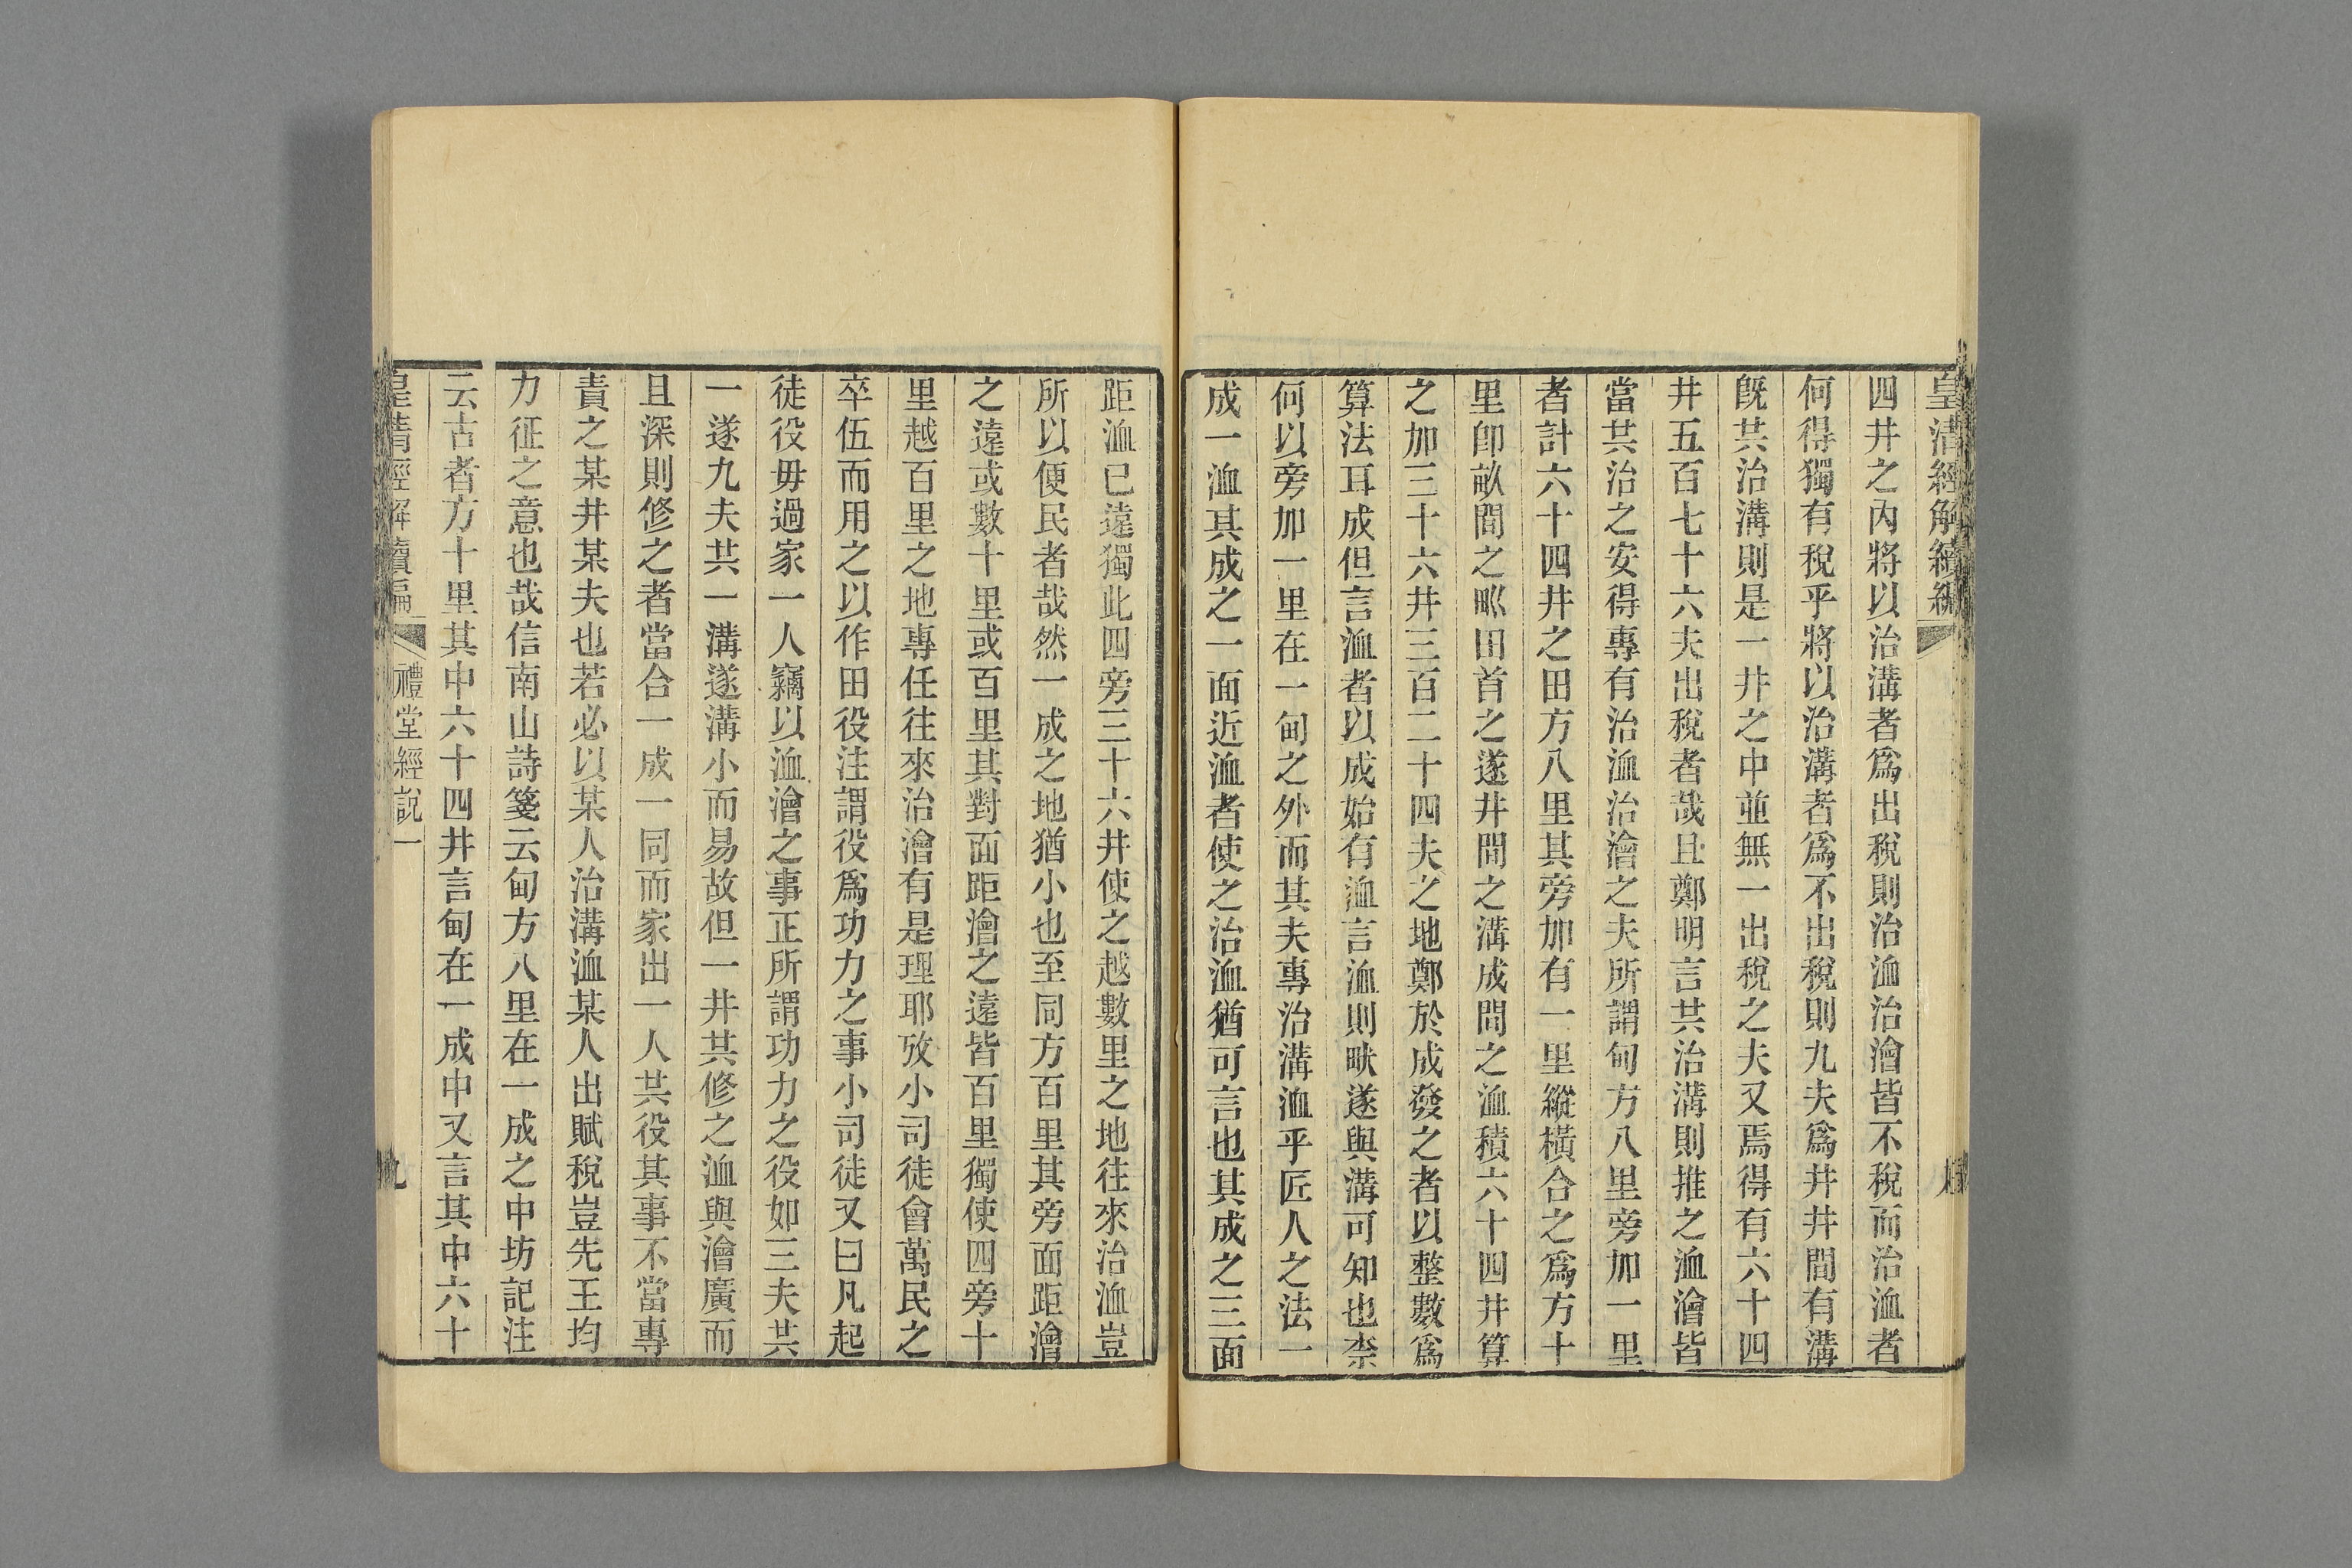 皇清經解續編
四井之內將以治溝者爲出稅則治洫治澮皆不稅而治洫者
何得獨有稅乎將以治溝者爲不出稅則九夫爲井井間有溝
旣共治溝則是一井之中並無一出稅之夫又焉得有六十四
井五百七十六夫出稅者哉且鄭明言共治溝則推之洫澮皆
當共治之安得專有治洫治澮之夫所謂甸方八里旁加一里
者計六十四井之田方八里其旁加有一里縱橫合之爲方十
里卽畝間之𤰕田首之遂井間之溝成間之洫積六十四井算
之加三十六井三百二十四夫之地鄭於成發之者以整數爲
算法耳成但言洫者以成始有洫言洫則畎遂與溝可知也柰
何以旁加一里在一甸之外而其夫專治溝洫乎匠人之法一
成一洫其成之一面近洫者使之治洫猶可言也其成之三面
距洫已遠獨此四旁三十六井使之越數里之地往來治洫豈
所以便民者哉然一成之地猶小也至同方百里其旁面距澮
之遠或數十里或百里其對面距澮之遠皆百里獨使四旁十
里越百里之地專任往來治澮有是理耶攷小司徒會萬民之
卒伍而用之以作田役注謂役爲功力之事小司徒又曰凡起
徒役毋過家一人竊以洫澮之事正所謂功力之役如三夫共
一遂九夫共一溝遂溝小而易故但一井共修之洫與澮廣而
且深則修之者當合一成一同而家出一人共役其事不當專
責之某井某夫也若必以某人治溝洫某人出賦稅豈先王均
力征之意也哉信南山詩箋云甸方八里在一成之中坊記注
云古者方十里其中六十四井言甸在一成中又言其中六十
皇清經解續編 禮堂經說一 九